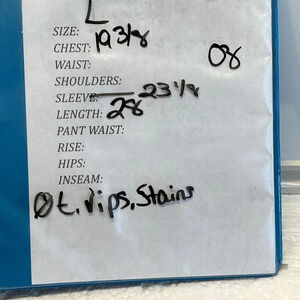 SIZE: L
CHEST: 19 3/8
WAIST: 08
SHOULDERS:
SLEEVE 23 1/8
LENGTH: 28
PANT WAIST:
RISE:
HIPS:
INSEAM:
Øt, rips, Stains